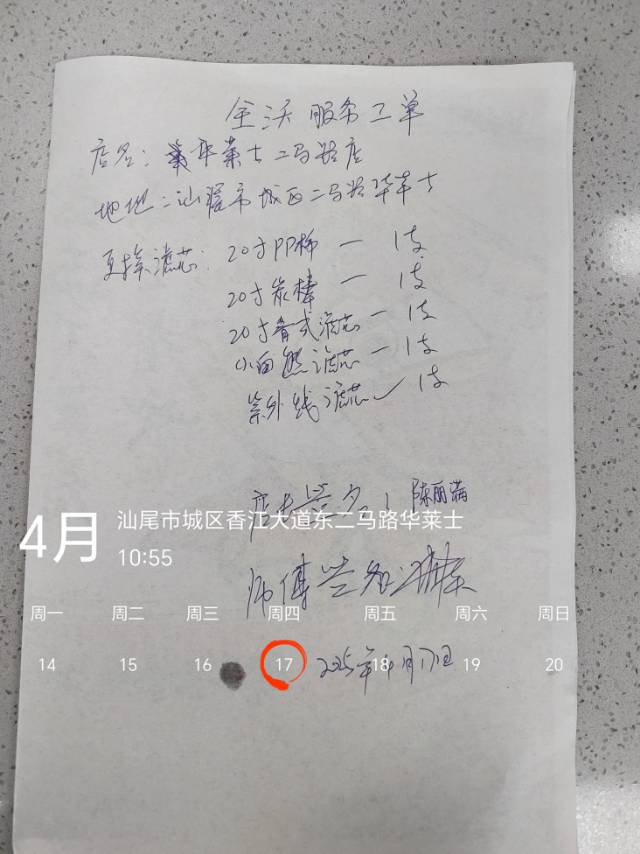 全沃服务工单
店名：华莱士二马路店
地址：汕尾市城区二马路华莱士
更换滤芯：20寸PP棉 — 1支
20寸炭棒 — 1支
20寸滤芯 — 1支
小白熊滤芯 — 1支
紫外线滤芯 1支
店长签名：陈丽满
4月
汕尾市城区香江大道东二马路华莱士
10:55
师傅签名：
周一 周二 周三 周四 周五 周六 周日
14 15 16 17 18 19 20
2025年4月17日